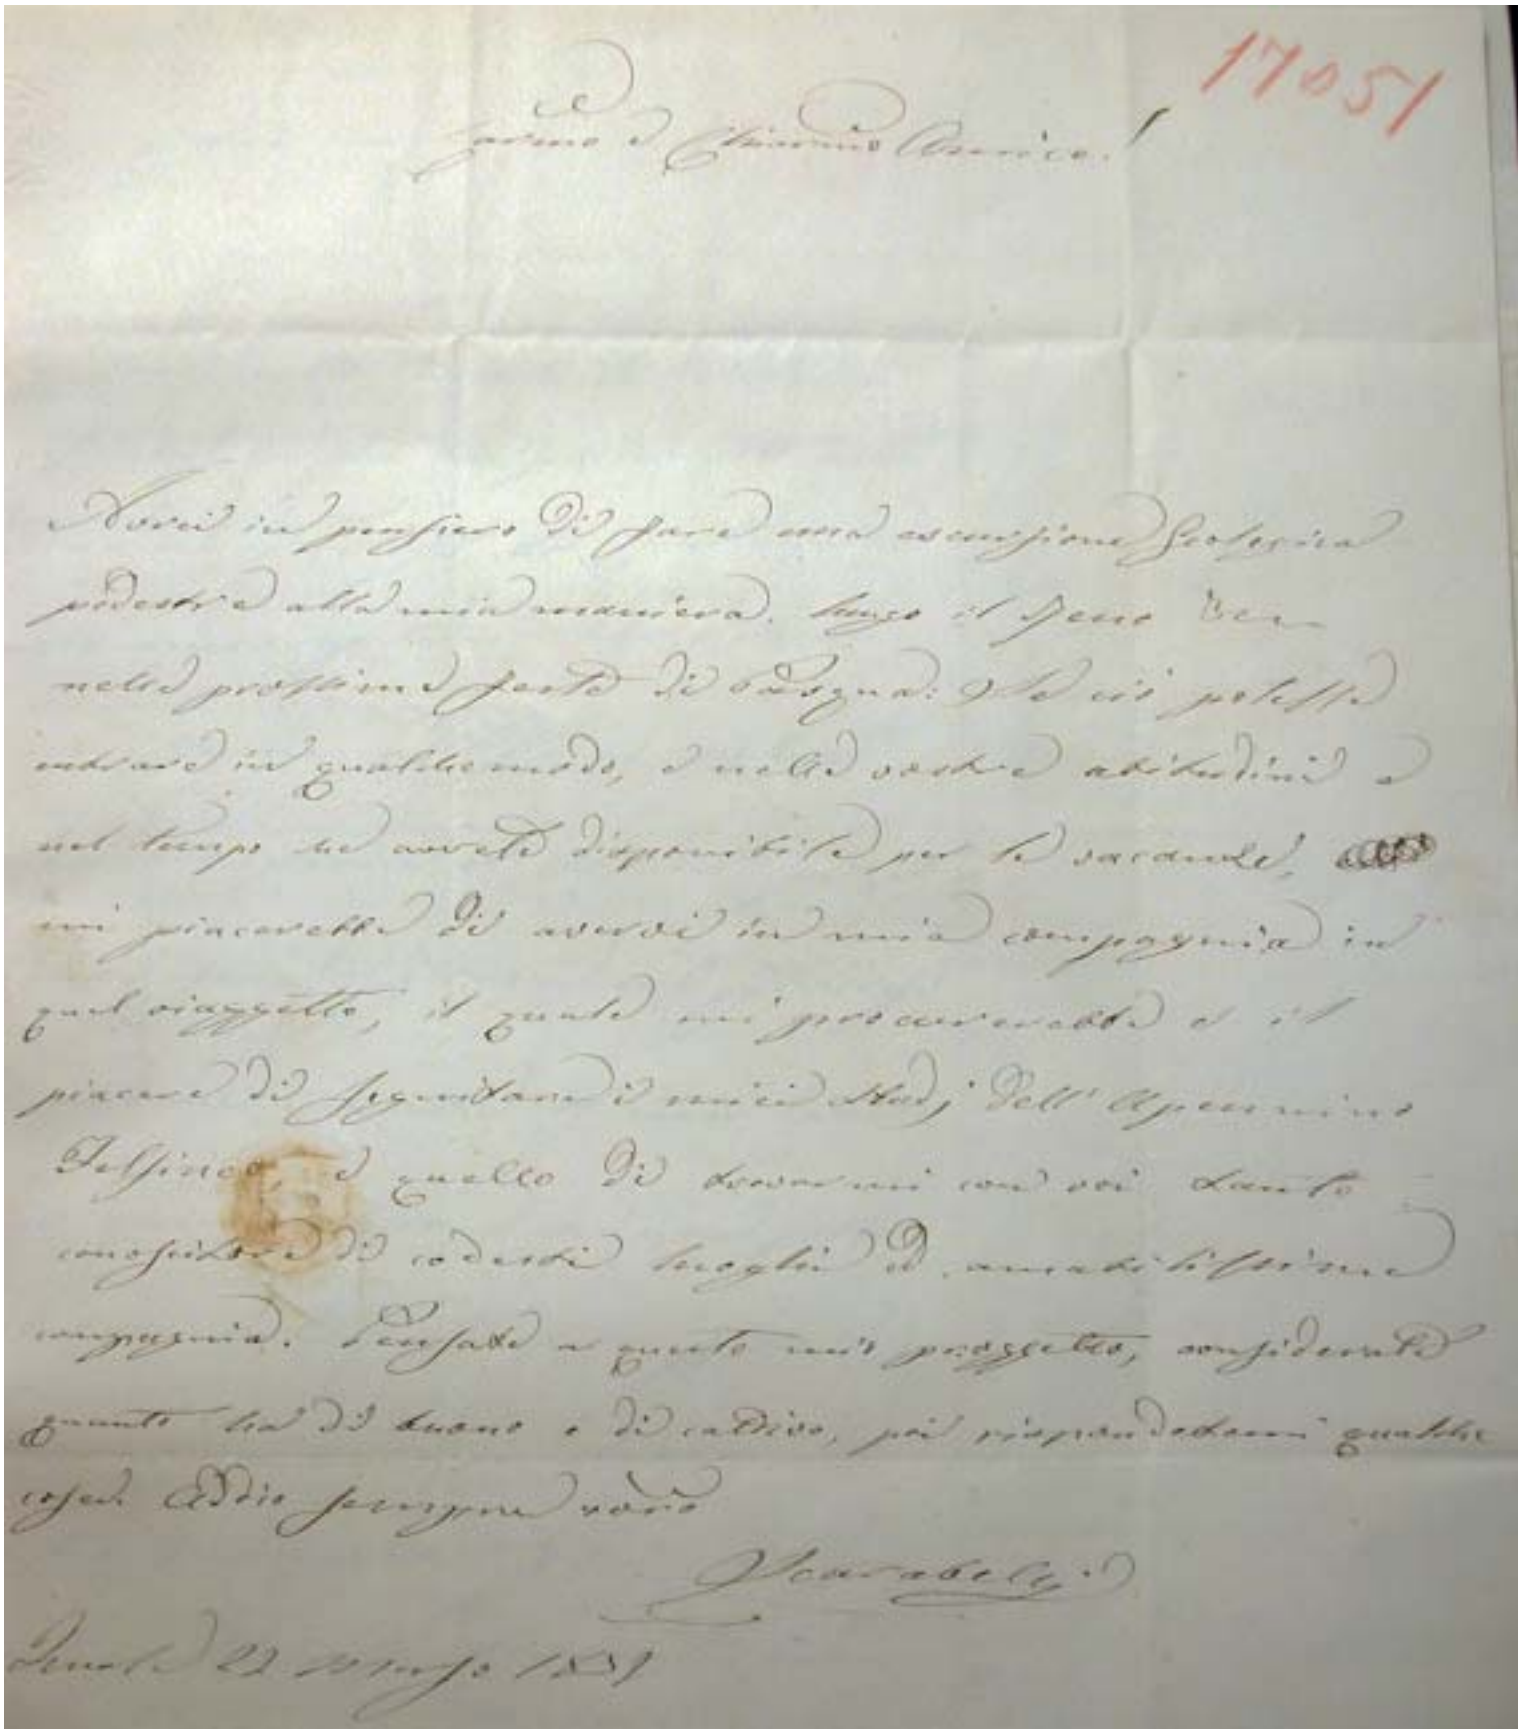 17051
Carmo e Chiarmo Amico!
Avrei in pensiero di fare una escursione Geologica
pedestre alla mia maniera lungo il Reno
nelle prossime feste di Pasqua: Se ciò potesse
entrare in qualche modo, e nelle vostre abitudini e
nel tempo che avrete disponibile per le vacanze,
mi piacerebbe di avervi in mia compagnia in
quel viaggetto, il quale mi procurerebbe e il
piacere di seguitare i miei studj dell'Apennino
Felsineo, e quello di trovarmi con voi tanto
conoscitore di codesti luoghi ed amabilissima
compagnia. Pensate a questo mio proggetto, considerate
quanto ha di buono e di cattivo, poi rispondetemi qualche
cosa. Addio sempre vostro
Scarabelli
Imola 22 Marzo 1851